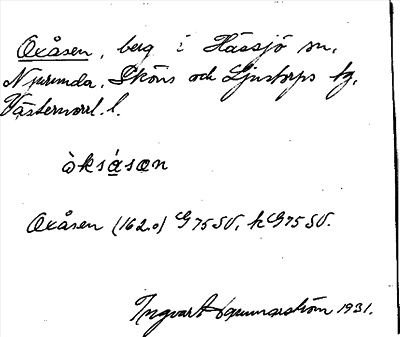 Oxåsen, berg i Hässjö sn,
Njurunda, Sköns och Ljustorps tg,
Västernorrl. l.
òksá̱sən
Oxåsen (162.0) G 75 SV, k G 75 SV.
Ingvar Hammarström 1931.